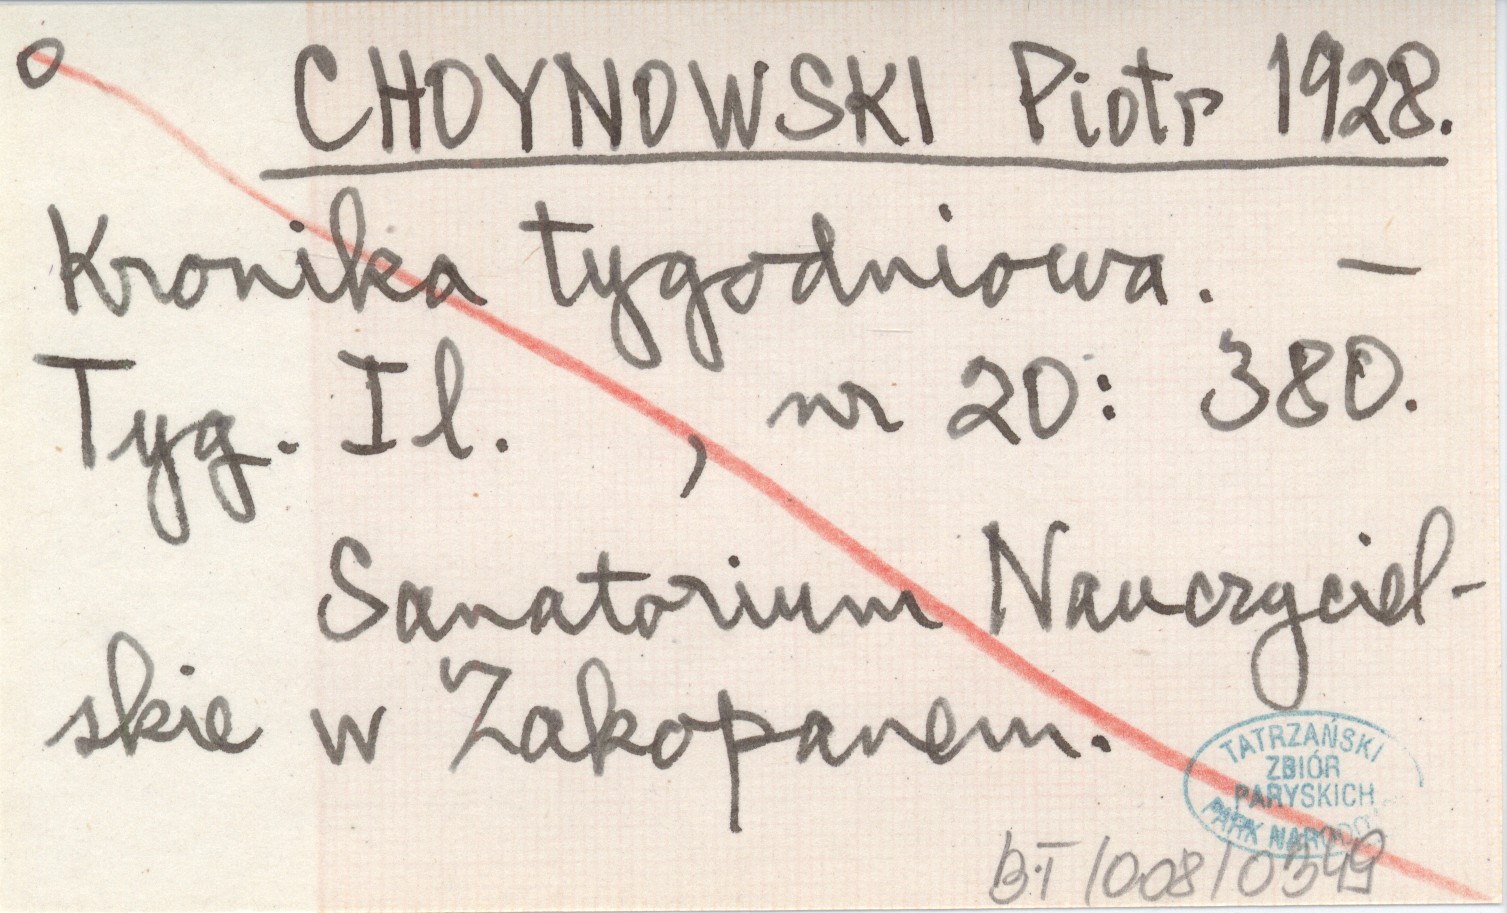 CHOYNOWSKI Piotr 1928.
Kronika tygodniowa. —
Tyg. Il. , nr 20: 380.
Sanatorium Nauczyciel-
skie w Zakopanem.
TATRZAŃSKI
ZBIÓR
PARYSKICH
PARK NARODO
B.T/008/0349